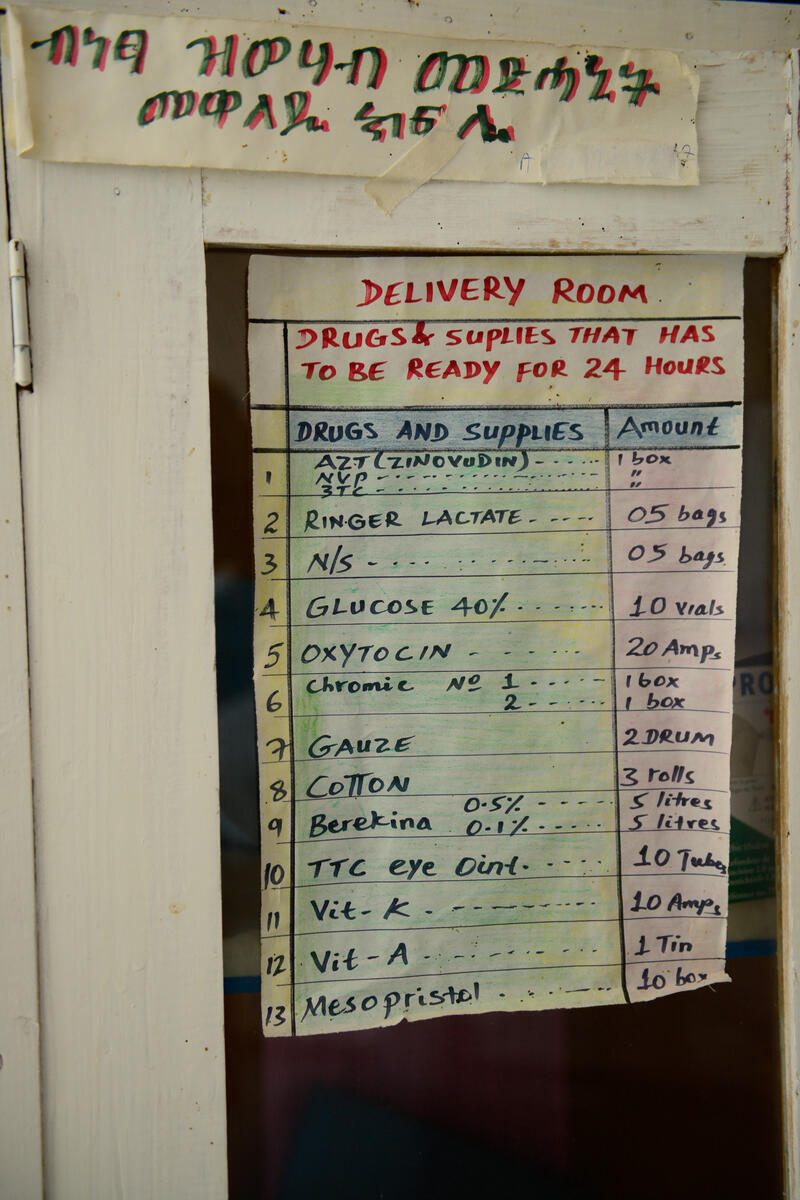 ብነፃ ዝመሃብ መድሓኒት
መዋለዲ ክፍሊ
DELIVERY ROOM
DRUGS & SUPLIES THAT HAS
TO BE READY FOR 24 HOURS
DRUGS AND SUPPLIES Amount
1 AZT (ZINOVUDIN) - - - - - 1 box
NVP - - - - - - - - - - "
3TC - - - - - - - - - - "
2 RINGER LACTATE - - - - - 05 bags
3 N/S - - - - - - - - - - 05 bags
4 GLUCOSE 40% - - - - - - 10 vials
5 OXYTOCIN - - - - - 20 Amps
6 Chromic Nº 1 - - - - - 1 box
2 - - - - - 1 box
7 GAUZE 2 DRUM
8 COTTON 3 rolls
9 Berekina 0.5% - - - - 5 litres
0.1% - - - - 5 litres
10 TTC eye Oint. - - - - 10 Tubes
11 Vit-K - - - - - - - - 10 Amps
12 Vit-A - - - - - - - - 1 Tin
13 Mesopristol - - - - - - 10 box
PRO